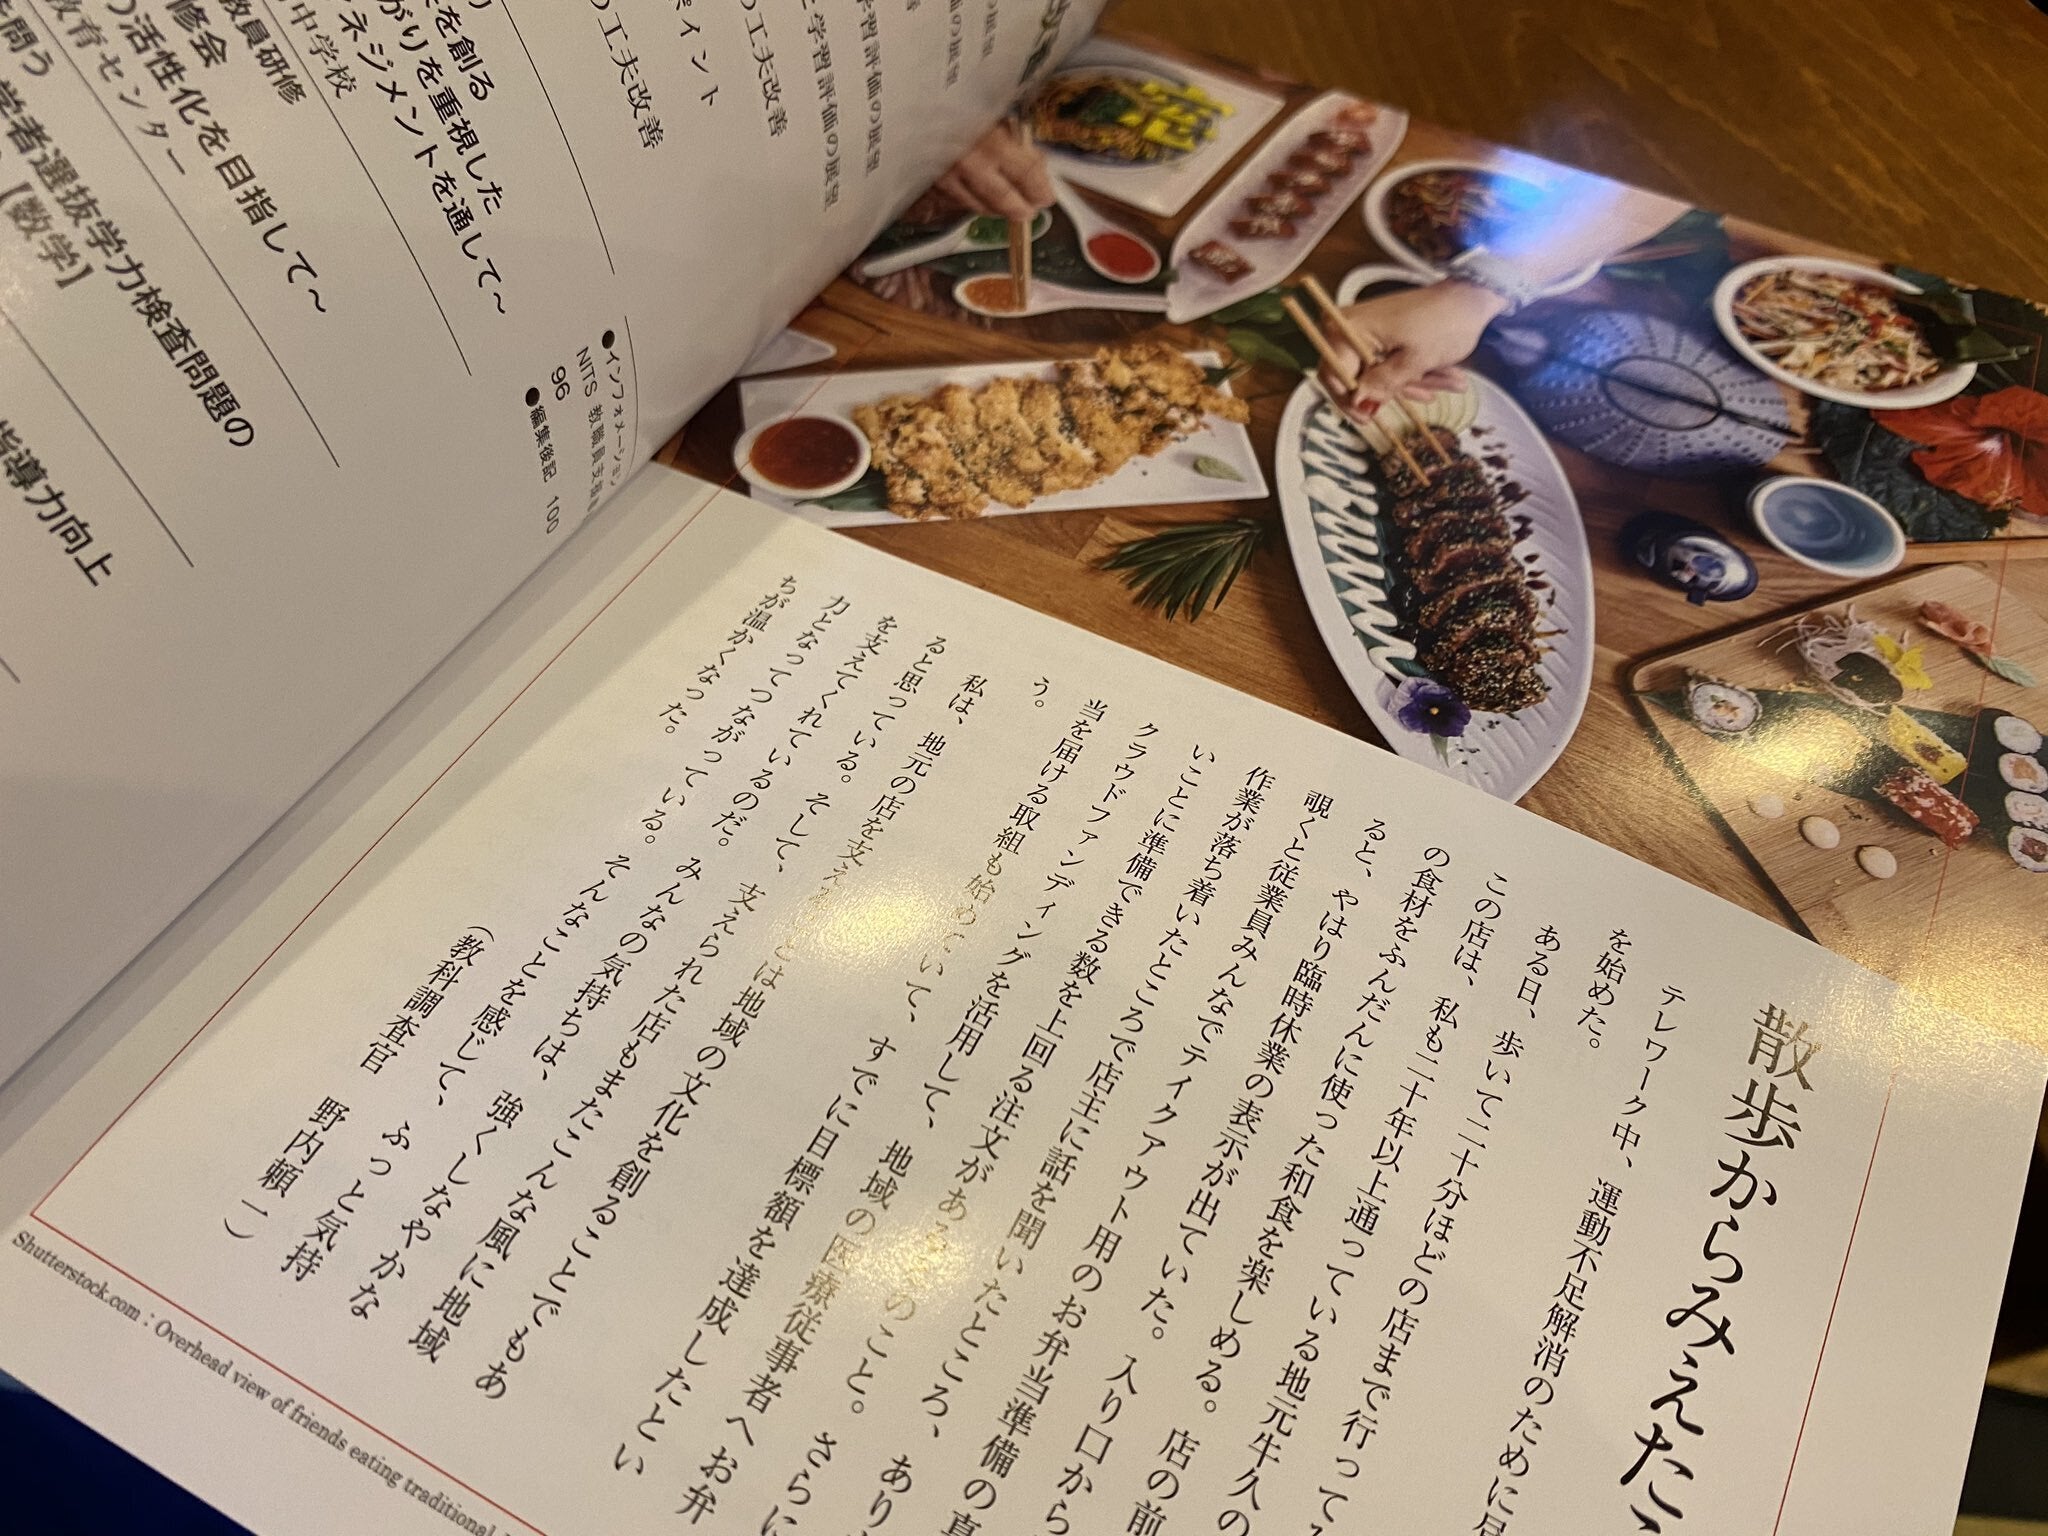 散歩からみえた
テレワーク中、運動不足解消のために
を始めた。
ある日、歩いて二十分ほどの店まで行って
この店は、私も二十年以上通っている地元牛久の
の食材をふんだんに使った和食を楽しめる。店の前
ると、やはり臨時休業の表示が出ていた。入り口から
覗くと従業員みんなでテイクアウト用のお弁当準備の真
作業が落ち着いたところで店主に話を聞いたところ、あり
いことに準備できる数を上回る注文がある のこと。さらに
クラウドファンディングを活用して、地域の医療従事者へお弁
当を届ける取組も始めていて、すでに目標額を達成したとい
う。
私は、地元の店を支え とは地域の文化を創ることでもあ
ると思っている。そして、支えられた店もまたこんな風に地域
を支えてくれているのだ。みんなの気持ちは、強くしなやかな
力となってつながっている。そんなことを感じて、ふっと気持
ちが温かくなった。
(教科調査官 野内頼一)
Shutterstock.com：Overhead view of friends eating traditional
●インフォメーション
NITS 教職員支援
96
●編集後記 100
を創る
がりを重視した
ネジメントを通して～
教員研修
中学校
修会
活性化を目指して～
教育センター
問う
学者選抜学力検査問題の
【数学】
指導力向上
イント
の工夫改善
の工夫改善
と学習評価の展望
学習評価の展望